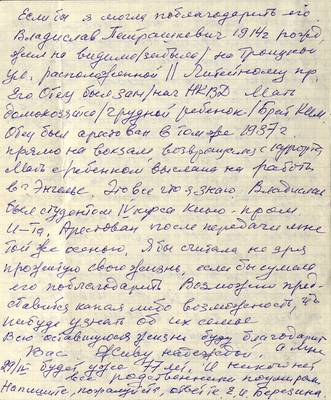 Если бы я могла поблагодарить его.
Владислав Петрашкевич 1914 г рожд.
жил на видимо /забыла/ на Троицкой
ул., расположенной || Литейному пр.
Его Отец был зам/нач НКВД Мать
домохозяйка /грудной ребенок/ Брат Ким.
Отец был арестован в том же 1937 г
прямо на вокзале, возвращаясь с курорта,
Мать с ребенком выслана на работы
в г Энгельс. Это все что я знаю. Владислав
был студентом IV курса Кино-пром.
И-та, Арестован после передачи мне
той же осенью, Я бы считала не зря
прожитую свою жизнь, если бы сумела
его поблагодарить. Возможно пред-
ставится какая либо возможность, что
нибудь узнать об их семье.
Всю оставшуюся жизнь буду благодарить
Вас Живу надеждой, а мне
29/IV будет уже 77 лет, И никого нет
все родственники поумирали.
Напишите, пожалуйста, ответьте Е.И. Березина.